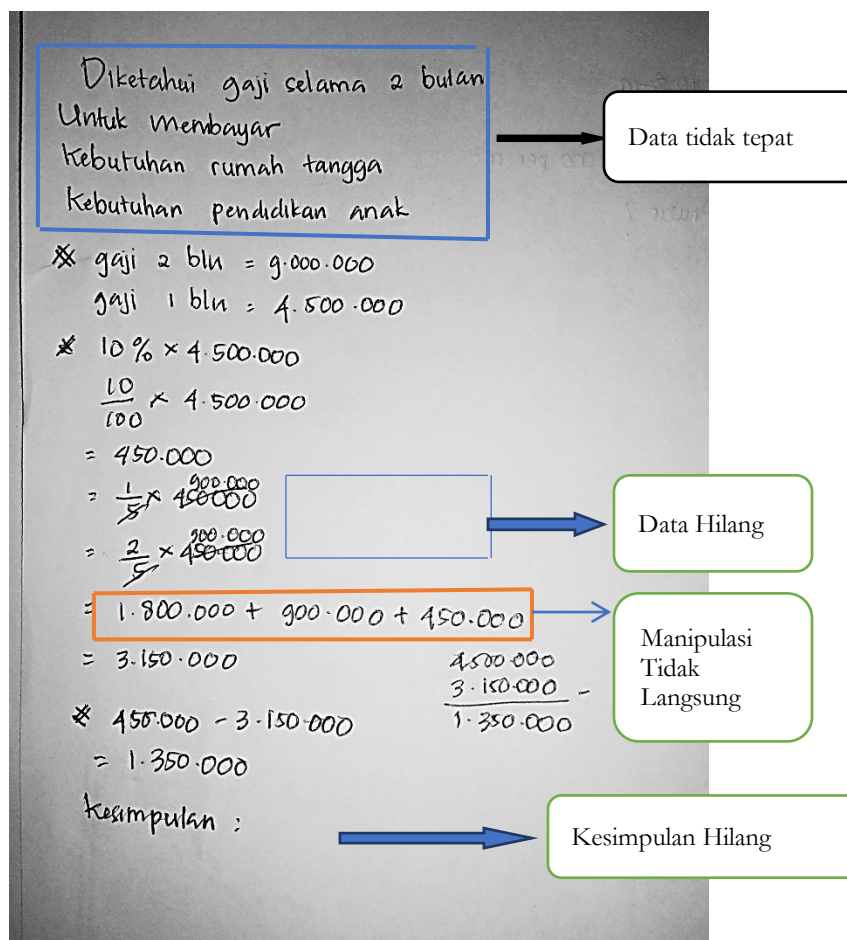 Diketahui gaji selama 2 bulan
Untuk membayar
Kebutuhan rumah tangga
Kebutuhan pendidikan anak
Data tidak tepat
* gaji 2 bln = 9.000.000
gaji 1 bln = 4.500.000
* 10% × 4.500.000
10/100 × 4.500.000
= 450.000
= 1/5 × 450000 900.000
= 2/5 × 450.000 900.000
Data Hilang
= 1.800.000 + 900.000 + 450.000
= 3.150.000
4500.000
3.150.000 -
1.350.000
Manipulasi
Tidak
Langsung
* 450.000 - 3.150.000
= 1.350.000
Kesimpulan :
Kesimpulan Hilang